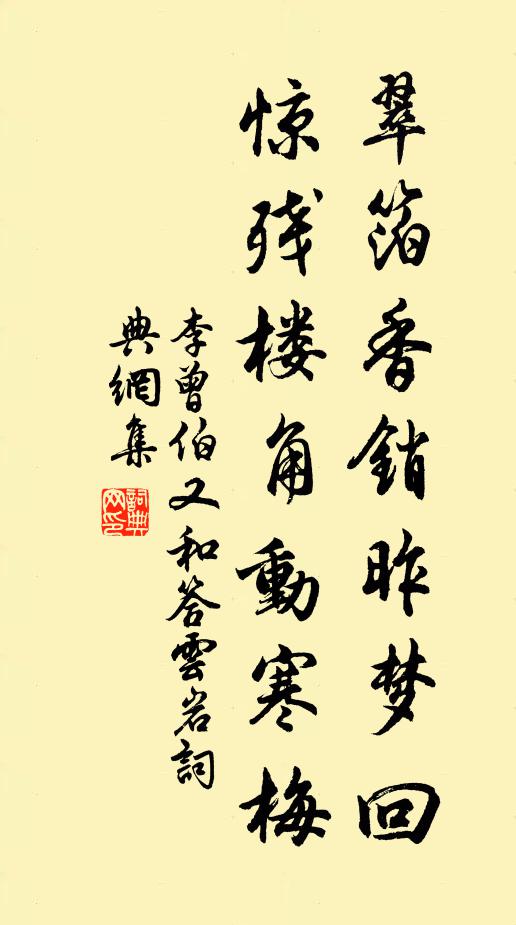 翠箔香銷昨梦回
惊残楼角動寒梅
李曾伯又和答雲岩詞
典網集
詞典网印